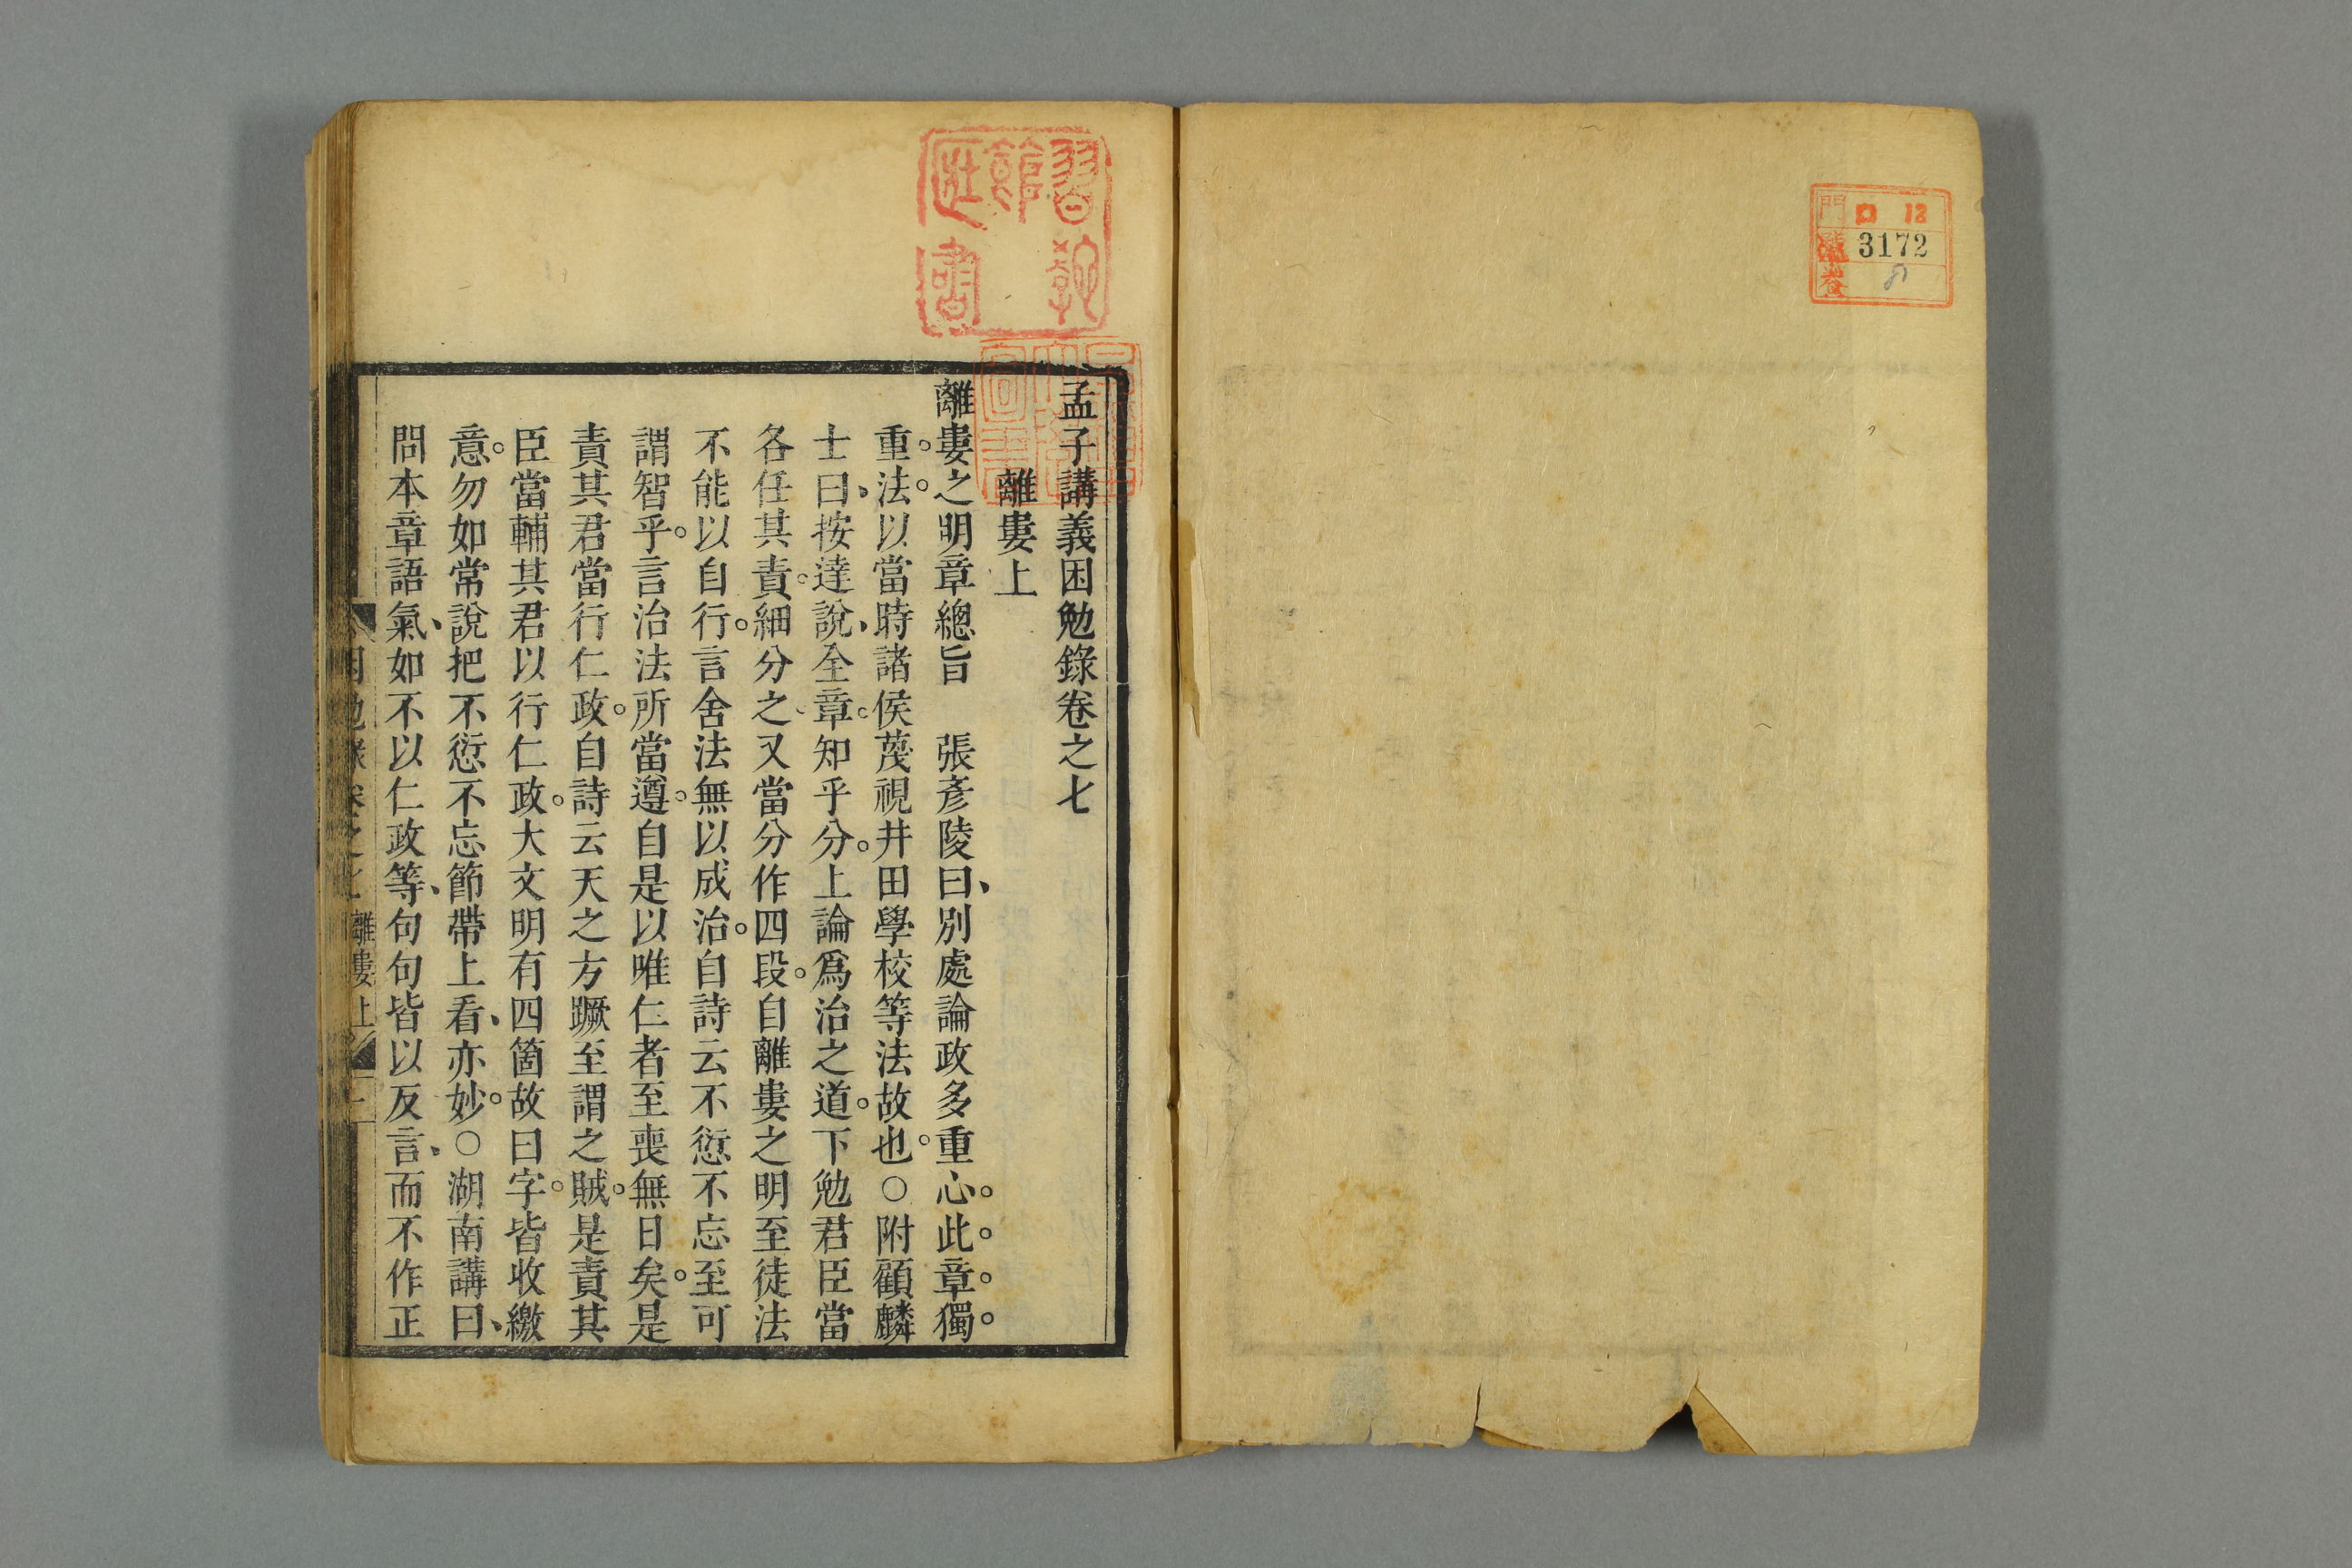 門 ロ 12
號 3172
卷
習
館
孟子講義困勉錄卷之七
離婁上
離婁之明章總旨　張彥陵曰、別處論政多重心。此。章。獨。
重。法。以當時諸侯蔑視井田學校等法故也。○附顧麟
士曰、按達說、全章。知乎分。上論爲治之道。下勉君臣當
各任其責。細分之、又當分作四段。自離婁之明至徒法
不能以自行。言舍法無以成治。自詩云不愆不忘至可
謂智乎。言治法所當遵。自是以唯仁者至喪無日矣。是
責其君當行仁政。自詩云天之方蹶至謂之賊。是責其
臣當輔其君以行仁政。大文明有四箇故曰字。皆收繳
意。勿如常說把不愆不忘節帶上看、亦妙。○湖南講曰、
問本章語氣、如不以仁政等、句句皆以反言、而不作正
困勉錄 卷之七 離婁上 一